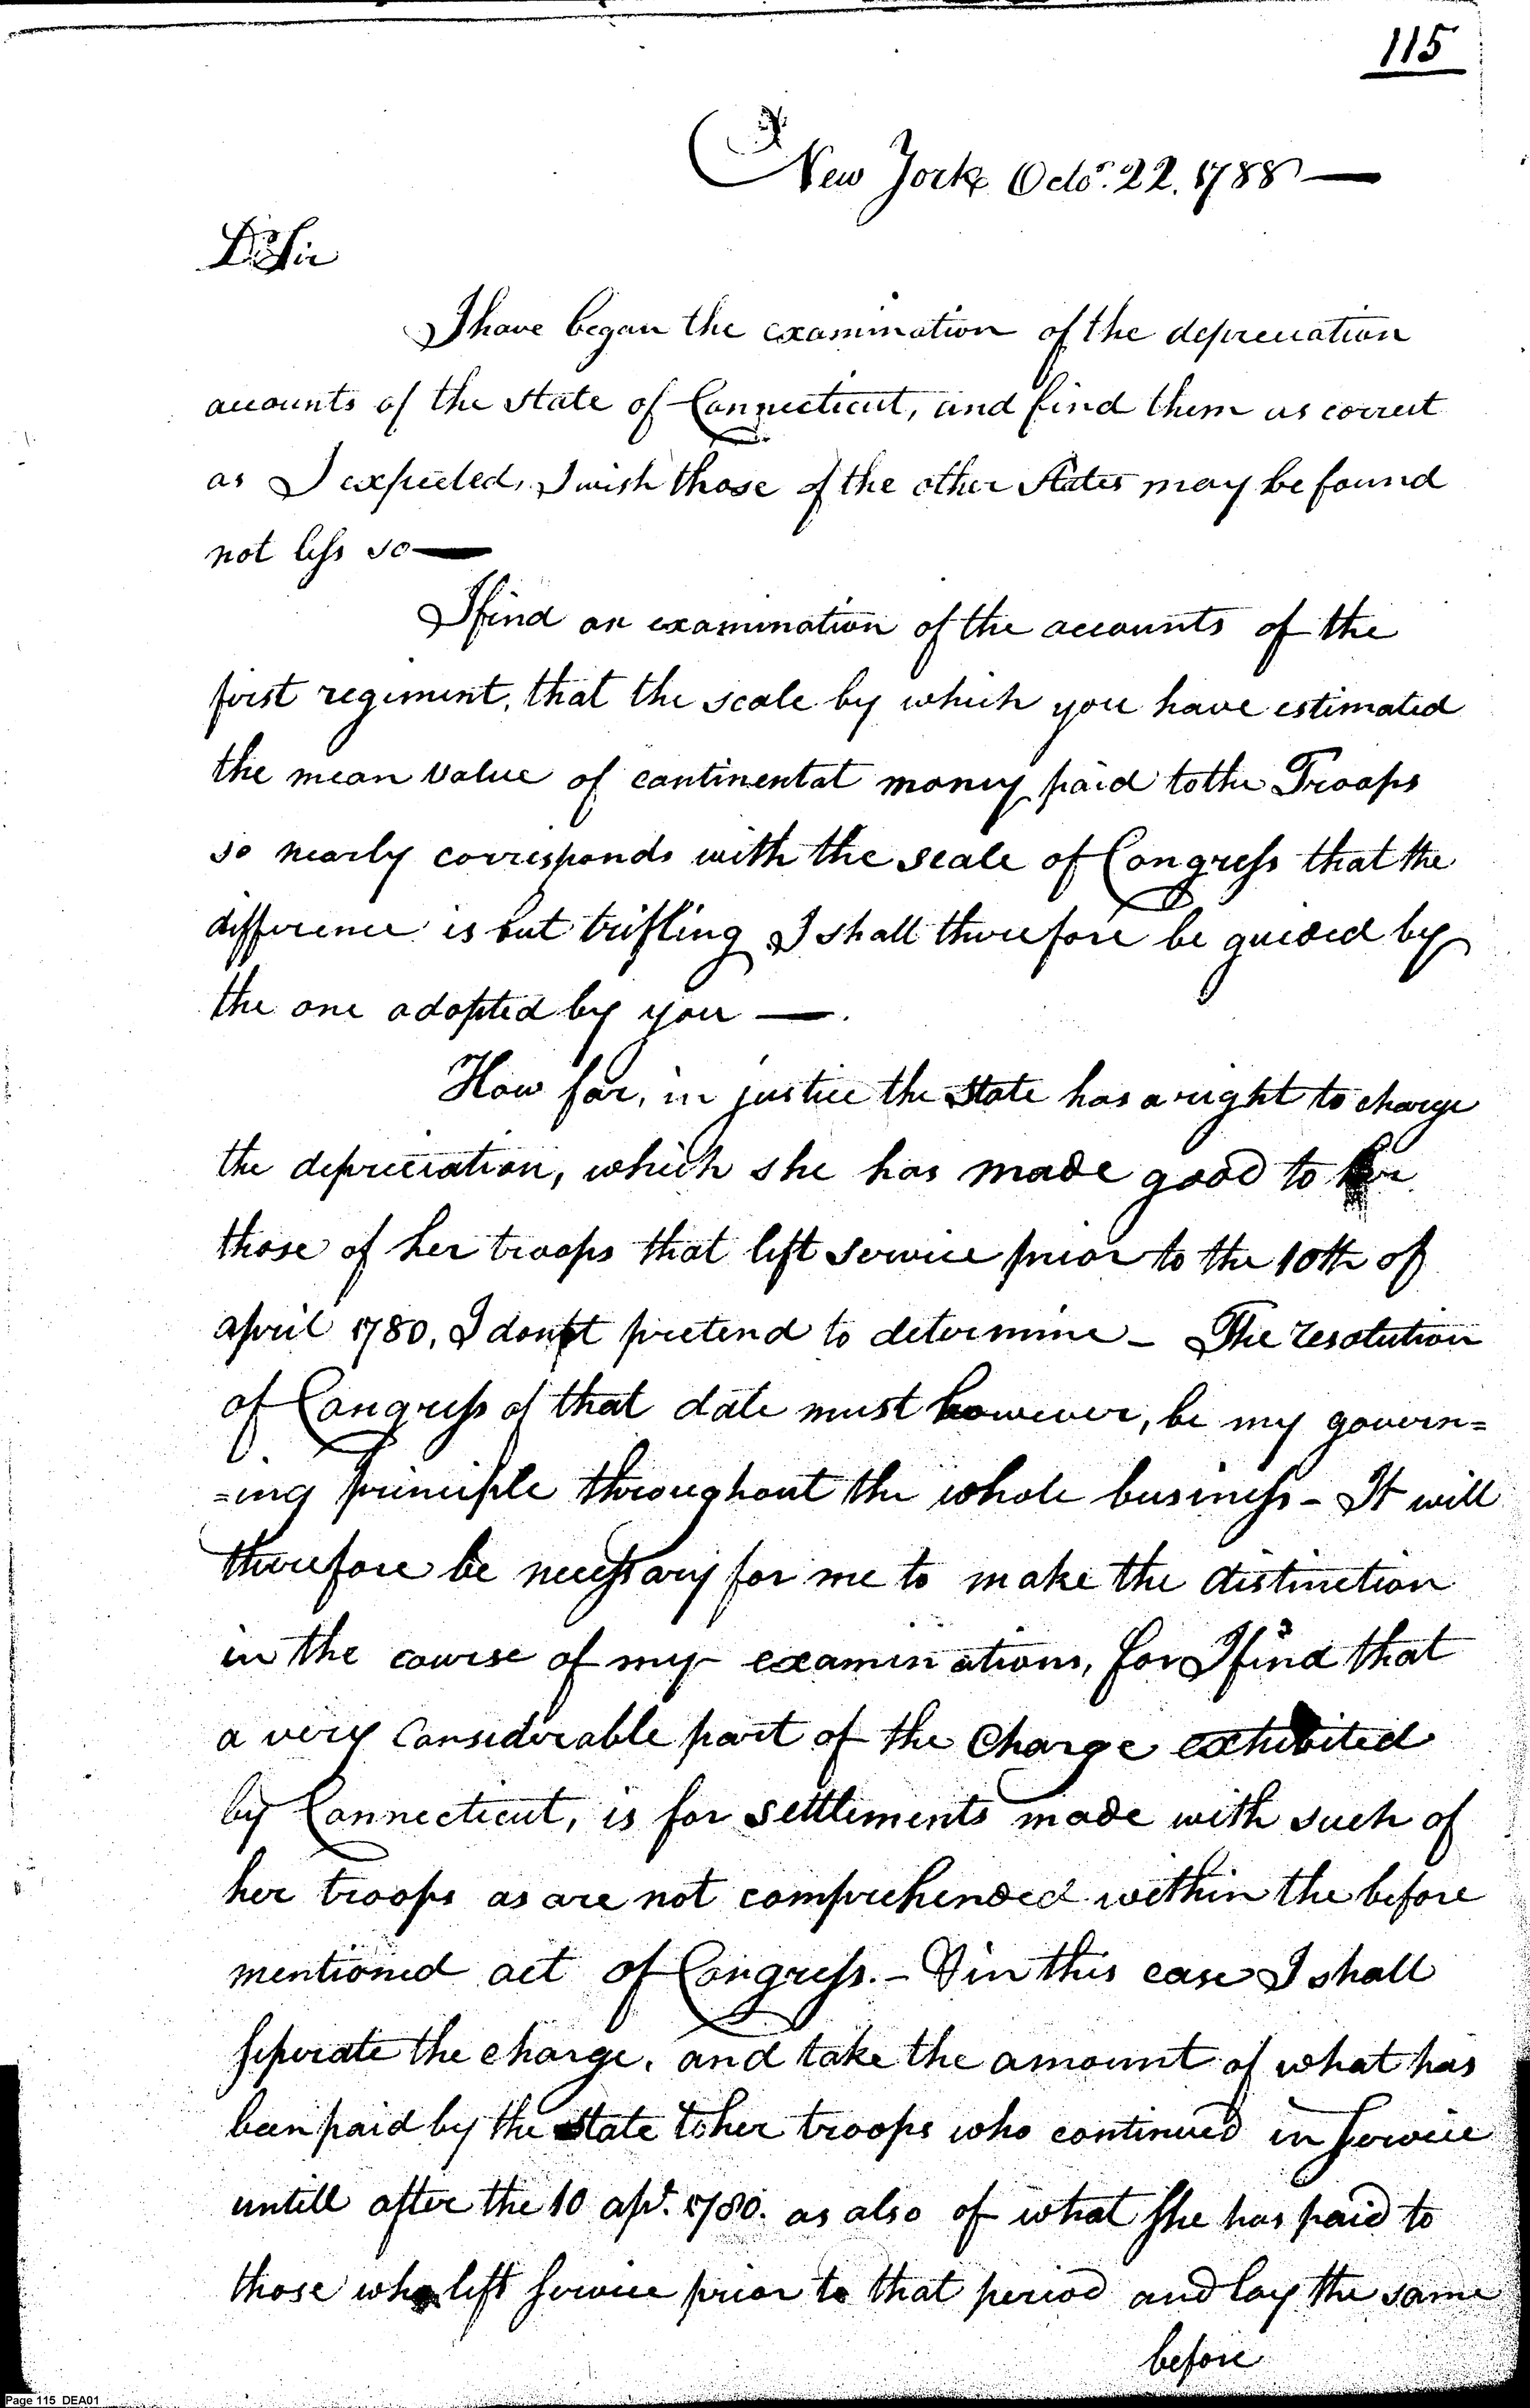 115
New York Octo.r 22. 1788 —
Dr Sir
I have began the examination of the depreciation
accounts of the state of Connecticut, and find them as correct
as I expected, I wish those of the other States may be found
not less so —
I find on examination of the accounts of the
first regiment, that the scale by which you have estimated
the mean value of continental money paid to the Troops
so nearly corresponds with the scale of Congress that the
difference is but trifling I shall therefore be guided by
the one adopted by you —.
How far, in justice the state has a right to charge
the depreciation, which she has made good to
those of her troops that left service prior to the 10th of
april 1780, I dont pretend to determine - The resolution
of Congress of that date must however, be my govern=
=ing principle throughout the whole business - It will
therefore be necessary for me to make the distinction
in the course of my examinations, for I find that
a very Considerable part of the Charge exhibited
by Connecticut, is for settlements made with such of
her troops as are not comprehended within the before
mentioned act of Congress. - in this case I shall
seperate the charge, and take the amount of what has
been paid by the state to her troops who continued in service
untill after the 10 apl. 1780. as also of what she has paid to
those who left service prior to that period and lay the same
before
Page 115 DEA01